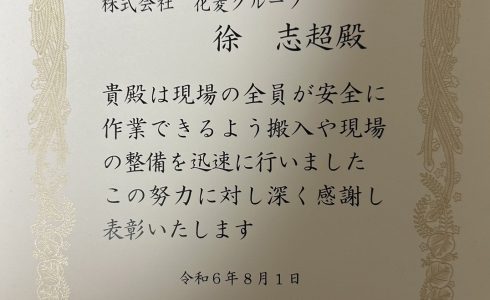 株式会社　花菱グループ
徐　志超殿
貴殿は現場の全員が安全に
作業できるよう搬入や現場
の整備を迅速に行いました
この努力に対し深く感謝し
表彰いたします
令和６年８月１日